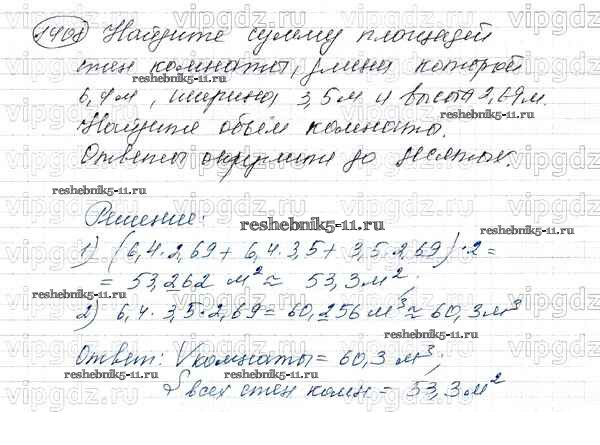 1408 Найдите сумму площадей
стен комнаты, длина которой
6,4 м, ширина 3,5 м и высота 2,69 м.
Найдите объём комнаты.
Ответы округлите до десятых.
Решение:
1) (6,4·2,69 + 6,4·3,5 + 3,5·2,69)·2 =
= 53,262 м² ≈ 53,3 м²;
2) 6,4·3,5·2,69 = 60,256 м³ ≈ 60,3 м³
Ответ: V комнаты = 60,3 м³;
S всех стен комн = 53,3 м²
vipgdz
reshebnik5-11.ru